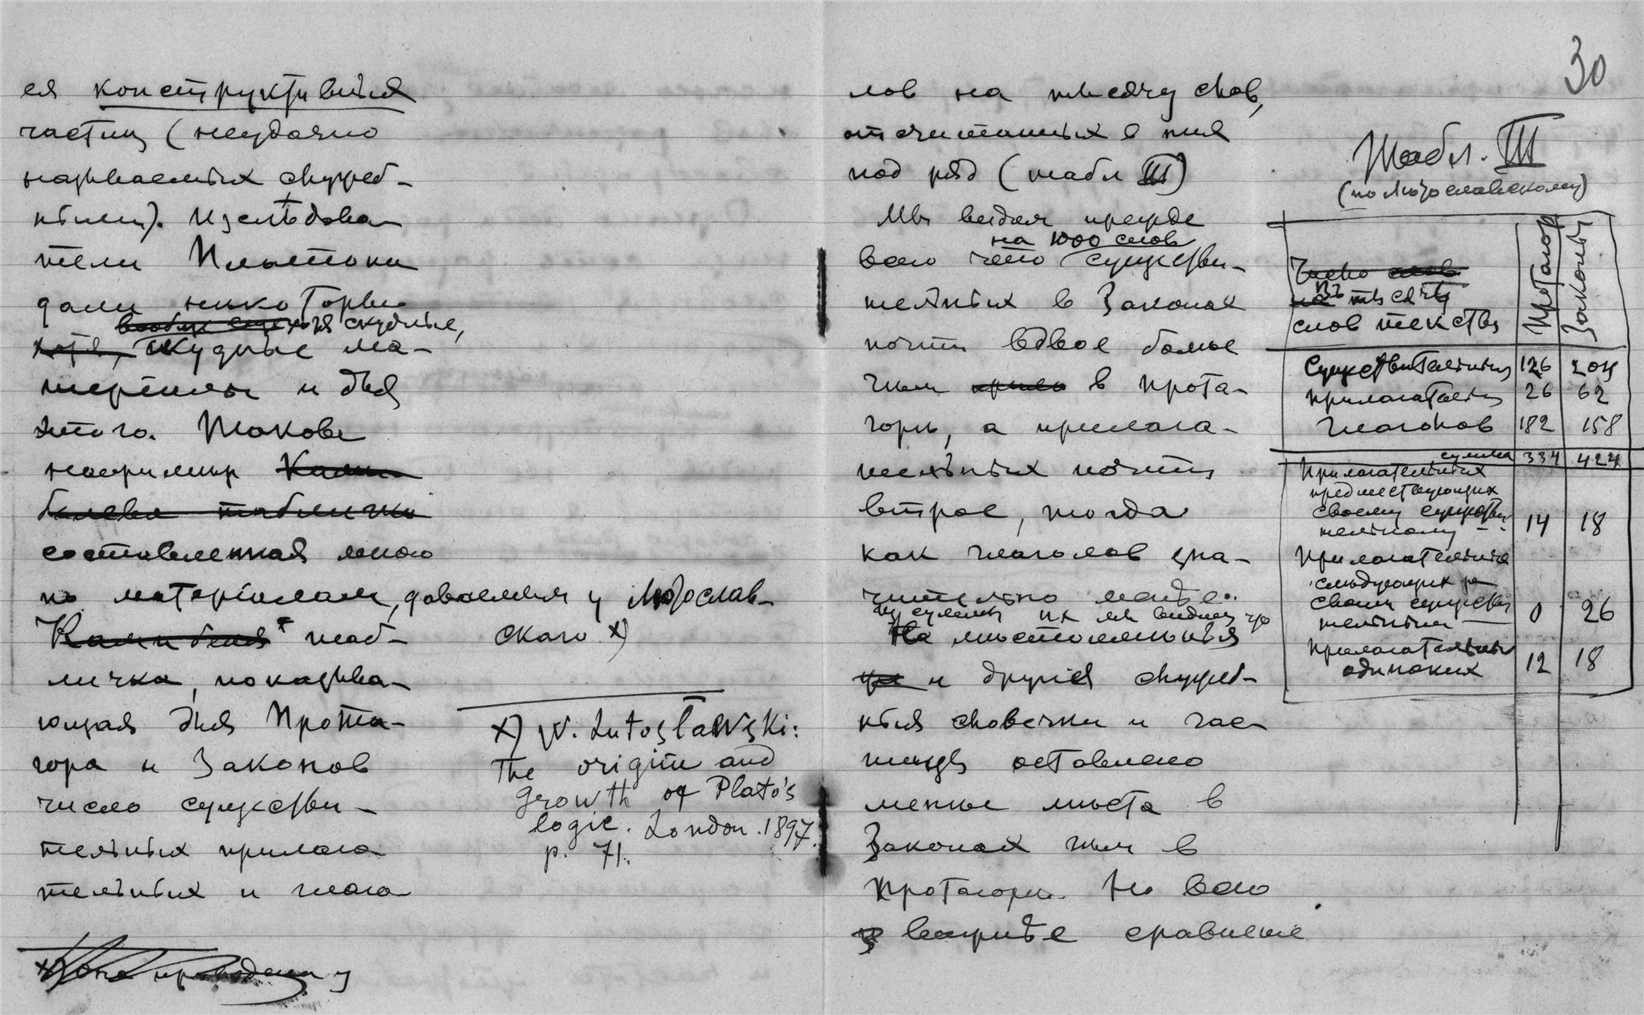 ея конструктивныя
частиц (неудачно
называемых служеб-
ными). Изслѣдова-
тели Платона
дали нѣкоторые
вообще еще хотя скудные,
хотя, скудные ма-
теріалы и для
этого. Такова
например
таблички
составленная мною
по матеріалам, даваемым у Лютослав-
скаго x)
таб-
личка, показыва-
ющая для Прота-
гора и Законов
число существи-
тельных прилага-
тельных и глаго-
x) W. Lutosławski:
The origin and
growth of Plato's
logic. London. 1897.
p. 71.
x) Она приведена у
30
лов на тысячу слов,
отсчитанных в них
под ряд (табл III)
Мы видим прежде
на 1000 слов
всего число существи-
тельных в Законах
почти вдвое более
чем в Прота-
горѣ, а прилага-
тельных почти
втрое, тогда
как глаголов зна-
чительно менѣе.
На мѣстоименія
и другія служеб-
ныя словечки и час-
тицы оставлено
менѣе мѣста в
Законах чѣм в
Протагорѣ. Но всего
в сравненіе
Табл. III
(по Лютославскому)
Число слов
на тысячу
слов текста
Протагор
Законы
Существительных 126 204
прилагательных 26 62
глаголов 182 158
сумма 334 424
Прилагательных
предшествующих
своему существи-
тельному 14 18
Прилагательных
слѣдующих за
своим существи-
тельным 0 26
Прилагательных
одиноких 12 18